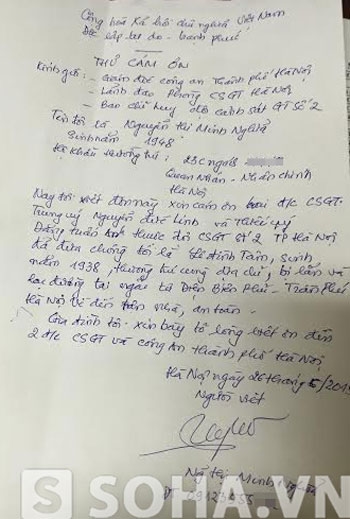 Cộng hòa Xã hội chủ nghĩa Việt Nam
Độc lập tự do - hạnh phúc
THƯ CẢM ƠN
Kính gửi: - Giám đốc công an Thành phố Hà Nội
- Lãnh đạo Phòng CSGT Hà Nội
- Ban chỉ huy đội cảnh sát GT Số 2
Tên tôi là Nguyễn Thị Minh Nghĩa
Sinh năm 1948
Hộ khẩu thường trú: 23C ngõ
Quan Nhân - Nhân chính
Hà Nội
Nay tôi viết đơn này xin cám ơn hai đ/c CSGT.
Trung uý Nguyễn Đức Linh và Thiếu uý
Đặng Tuấn Anh thuộc đội CSGT Số 2 TP Hà Nội
đã đưa chồng tôi là Lê Đình Tám, sinh
năm 1938, thường trú cùng địa chỉ, bị lẫn và
lạc đường tại ngã tư Điện Biên Phủ - Trần Phú
Hà Nội về đến tận nhà, an toàn.
Gia đình tôi xin bày tỏ lòng biết ơn đến
2 đ/c CSGT và công An thành phố Hà Nội
Hà Nội ngày 26 tháng 5/201
Người viết
Thị Minh Nghĩa
ĐT
SOHA.VN